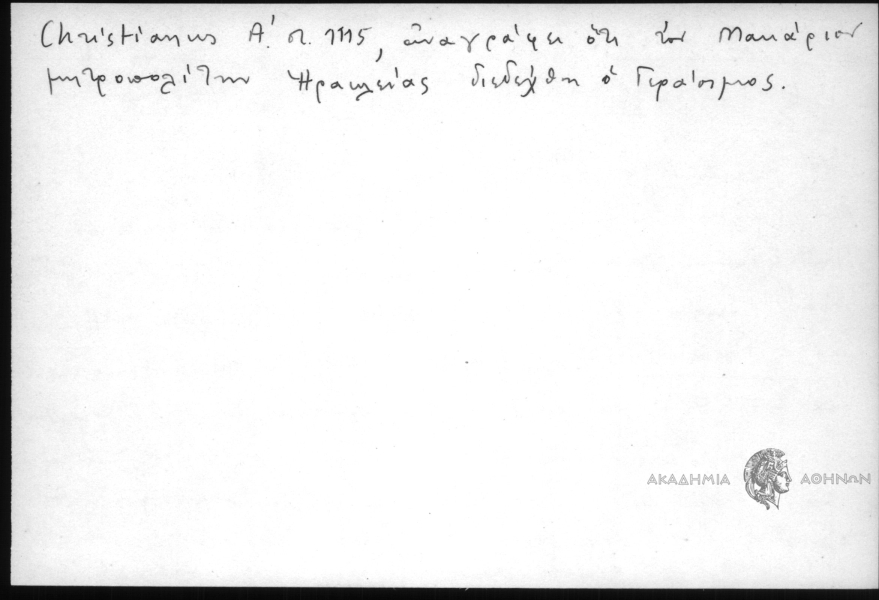 Christianus Α΄. στ. 1115, ἀναγράφει ὅτι τὸν Μακάριον
μητροπολίτην Ἡρακλείας διεδέχθη ὁ Γεράσιμος.
ΑΚΑΔΗΜΙΑ ΑΘΗΝΩΝ